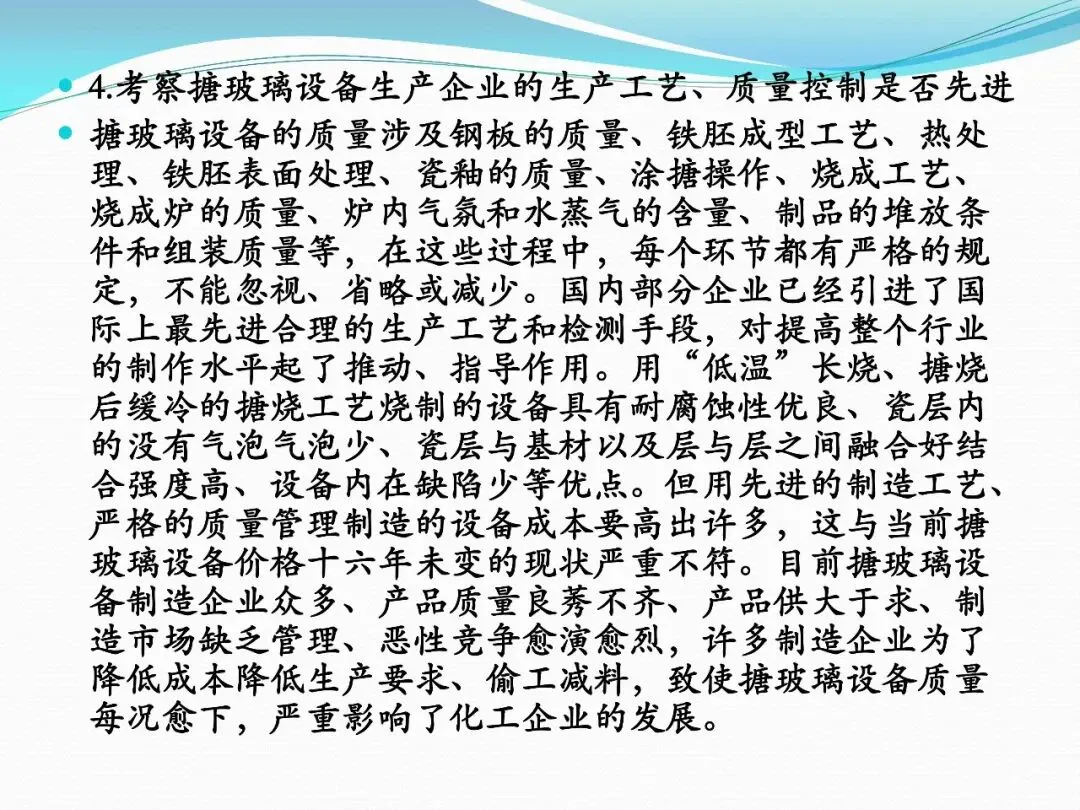 4.考察搪玻璃设备生产企业的生产工艺、质量控制是否先进
搪玻璃设备的质量涉及钢板的质量、铁胚成型工艺、热处
理、铁胚表面处理、瓷釉的质量、涂搪操作、烧成工艺、
烧成炉的质量、炉内气氛和水蒸气的含量、制品的堆放条
件和组装质量等，在这些过程中，每个环节都有严格的规
定，不能忽视、省略或减少。国内部分企业已经引进了国
际上最先进合理的生产工艺和检测手段，对提高整个行业
的制作水平起了推动、指导作用。用“低温”长烧、搪烧
后缓冷的搪烧工艺烧制的设备具有耐腐蚀性优良、瓷层内
的没有气泡气泡少、瓷层与基材以及层与层之间融合好结
合强度高、设备内在缺陷少等优点。但用先进的制造工艺、
严格的质量管理制造的设备成本要高出许多，这与当前搪
玻璃设备价格十六年未变的现状严重不符。目前搪玻璃设
备制造企业众多、产品质量良莠不齐、产品供大于求、制
造市场缺乏管理、恶性竞争愈演愈烈，许多制造企业为了
降低成本降低生产要求、偷工减料，致使搪玻璃设备质量
每况愈下，严重影响了化工企业的发展。